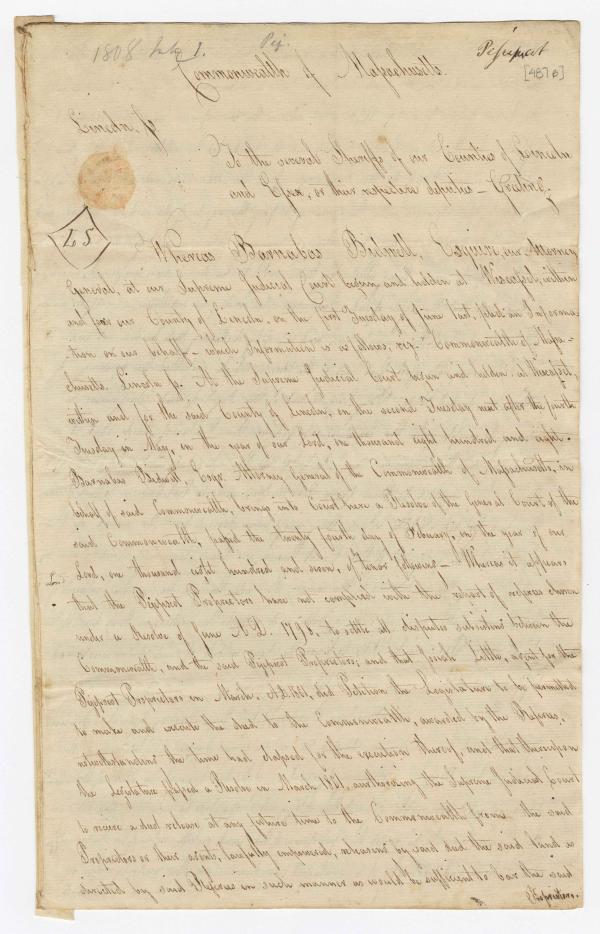 1808 July 1.
Pej.
Pejepscot
[487 B]
Commonwealth of Massachusetts.
Lincoln, ss.
To the several Sheriffs of our Counties of Lincoln
and Essex, or their respective deputies — Greeting,
L S
Whereas Barnabas Bidwell, Esquire, our Attorney
General, at our Supreme Judicial Court begun and holden at Wiscasset, within
and for our County of Lincoln, on the first Tuesday of June last, filed an Informa-
-tion on our behalf — which Information is as follows, viz. Commonwealth of Massa-
chusetts. Lincoln ss. At the Supreme Judicial Court begun and holden at Wiscasset,
within and for the said County of Lincoln, on the second Tuesday next after the fourth
Tuesday in May, in the year of our Lord, one thousand eight hundred and eight.
Barnabas Bidwell, Esqr. Attorney General of the Commonwealth of Massachusetts, in
behalf of said Commonwealth, brings into Court here a Resolve of the General Court of the
said Commonwealth, passed the twenty fourth day of February, in the year of our
Lord, one thousand eight hundred and seven, of tenor following — Whereas it appears
that the Pejepscot Proprietors have not complied with the report of referees chosen
under a Resolve of June A.D. 1798, to settle all disputes subsisting between the
Commonwealth, and the said Pejepscot Proprietors; and that Josiah Little, agent for the
Pejepscot Proprietors in March, A.D. 1801, did Petition the Legislature to be permitted
to make and execute the deed to the Commonwealth, awarded by the Referees,
notwithstanding the time had elapsed for the execution thereof, and that thereupon
the Legislature passed a Resolve in March 1801, authorising the Supreme Judicial Court
to receive a deed release at any future time to the Commonwealth from the said
Proprietors or their agents, lawfully empowered, by said deed the said land as
directed by said Referees in such manner as would be sufficient to bar the said
Proprietors.